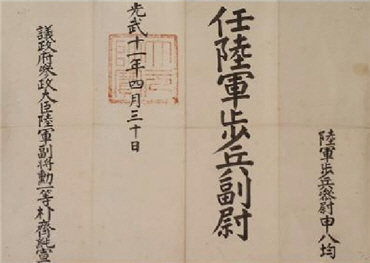 陸軍步兵參尉申八均
任陸軍步兵副尉
光武十一年四月三十日
議政府參政大臣陸軍副將勳一等朴齊純宣